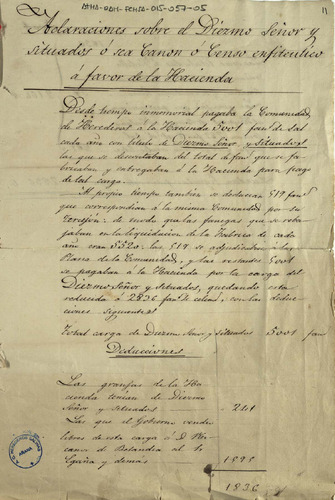 ATHA-DAH-FCHSA-015-057-05
11
Aclaraciones sobre el Diezmo Señor y
situados ó sea Canon ó Censo enfiteutico
a favor de la Hacienda
Desde tiempo inmemorial pagaba la Comunidad
de Herederos a la Hacienda 5001 fans de sal
cada año con titulo de Diezmo Señor y Situados
las que se descontaban del total de fans que se fa-
bricaban y entregaban á la Hacienda para pago
de tal carga.
Al propio tiempo tambien se deducian 519 fans
que correspondian á la misma Comunidad por su
de modo que las fanegas que se reba
jaban en la liquidacion de la fabrica de cada
año eran 5520: las 519 se adjudicaban á los
de la Comunidad, y las restantes 5001
se pagaban a la Hacienda por la carga del
Diezmo Señor y Situados, quedando esta
reducida á 2836 fans con las deduc
ciones siguientes
Total carga de Diezmo Señor y situados 5001 fans
Deducciones
Las granjas de la Ha-
cienda tenian de Diezmo
Señor y Situados 241
Las que el Gobierno vendió
libres de esta carga á D. Ri-
cardo de Bolandia
y demas